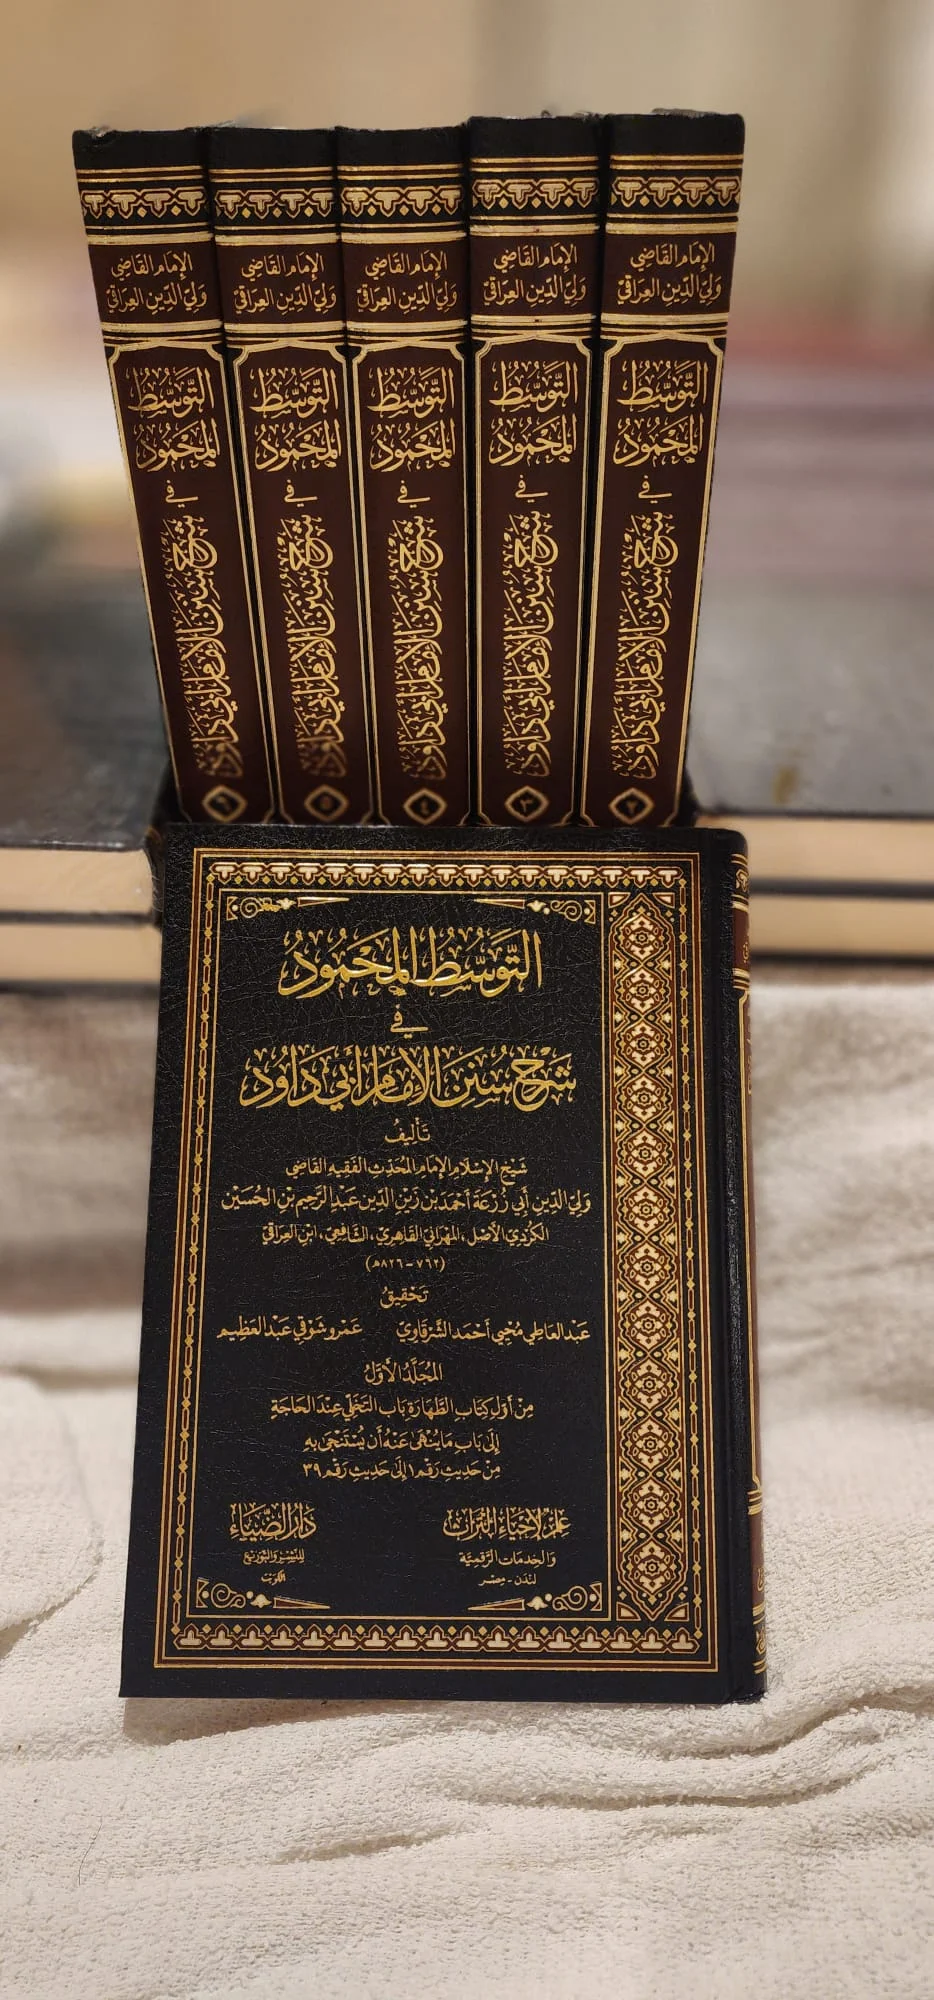 الإمام القاضي
ولي الدين العراقي
التوسط
المحمود
في
شرح سنن الإمام أبي داود
٦
الإمام القاضي
ولي الدين العراقي
التوسط
المحمود
في
شرح سنن الإمام أبي داود
٥
الإمام القاضي
ولي الدين العراقي
التوسط
المحمود
في
شرح سنن الإمام أبي داود
٤
الإمام القاضي
ولي الدين العراقي
التوسط
المحمود
في
شرح سنن الإمام أبي داود
٣
الإمام القاضي
ولي الدين العراقي
التوسط
المحمود
في
شرح سنن الإمام أبي داود
٢
التوسط المحمود
في
شرح سنن الإمام أبي داود
تأليف
شيخ الإسلام الإمام المحدث الفقيه القاضي
ولي الدين أبي زرعة أحمد بن زين الدين عبد الرحيم بن الحسين
الكردي الأصل، المهراني القاهري، الشافعي، ابن العراقي
(٧٦٢ - ٨٢٦هـ)
تحقيق
عبد العاطي محيي أحمد الشرقاوي عمرو شوقي عبد العظيم
المجلد الأول
من أول كتاب الطهارة باب التخلي عند الحاجة
إلى باب ما ينهى عنه أن يستنجى به
من حديث رقم ١ إلى حديث رقم ٣٩
علم لإحياء التراث
والخدمات الرقمية
لندن - مصر
دار الضياء
للنشر والتوزيع
الكويت